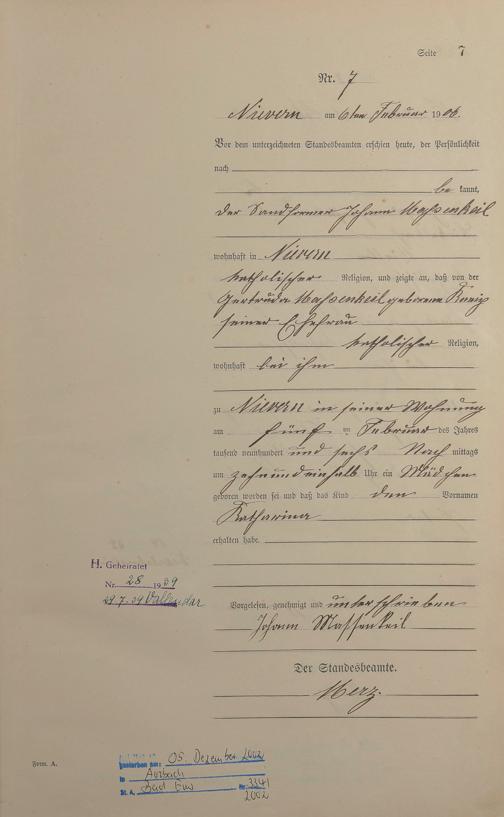 Seite 7
Nr. 7
Nievern am 6ten Februar 1906.
Vor dem unterzeichneten Standesbeamten erschien heute, der Persönlichkeit
nach
be kannt,
der Sandformer Johann Massenkeil
wohnhaft in Nievern
katholischer Religion, und zeigte an, daß von der
Gertruda Massenkeil geborene
seiner Ehefrau
katholischer Religion,
wohnhaft bei ihm
zu Nievern in seiner Wohnung
am fünf ten Februar des Jahres
tausend neunhundert und sechs Nach mittags
um zehnundeinhalb Uhr ein Mädchen
geboren worden sei und daß das Kind den Vornamen
Katharina
erhalten habe.
H. Geheiratet
Nr. 28 1939
29.7.39 Vallendar
Vorgelesen, genehmigt und unterschrieben
Johann Massenkeil
Der Standesbeamte.
Merz.
Form. A.
gestorben am: 05. Dezember 2002
in Arzbach
St. A. Bad Ems Nr. 334/
2002